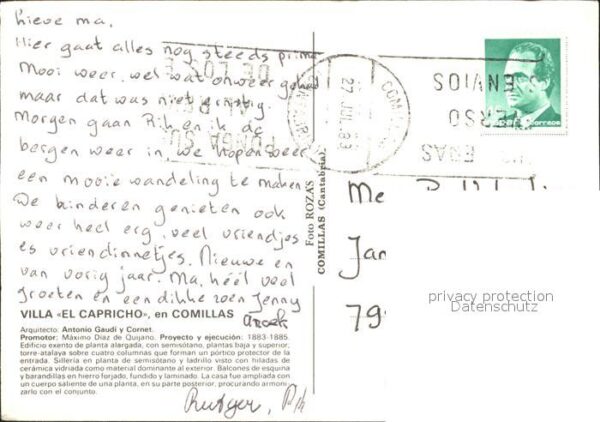 Lieve ma.
Hier gaat alles nog steeds prima
Mooi weer, wel wat onweer gehad
maar dat was niet ernstig.
Morgen gaan Rik en ik de
bergen weer in, we hopen weer
een mooie wandeling te maken
De kinderen genieten ook
weer heel erg, veel vriendjes
es vriendinnetjes. Nieuwe en
van vorig jaar. Ma, héél veel
groeten en een dikke zoen Jenny
VILLA «EL CAPRICHO», en COMILLAS
Arquitecto: Antonio Gaudí y Cornet.
Promotor: Máximo Díaz de Quijano. Proyecto y ejecución: 1883-1885.
Edificio exento de planta alargada, con semisótano, plantas baja y superior;
torre-atalaya sobre cuatro columnas que forman un pórtico de protector de la
entrada. Sillería en planta de semisótano y ladrillo visto con hiladas de
cerámica vidriada como material dominante al exterior. Balcones de esquina
y barandillas en hierro forjado, fundido y laminado. La casa fue ampliada con
un cuerpo saliente de una planta, en su parte posterior, procurando armoni-
zarlo con el conjunto.
Rutger, Rik
Foto ROZAS
COMILLAS (Cantabria)
27 JUL
ENVIOS
correos
Me
Jan
79
privacy protection
Datenschutz